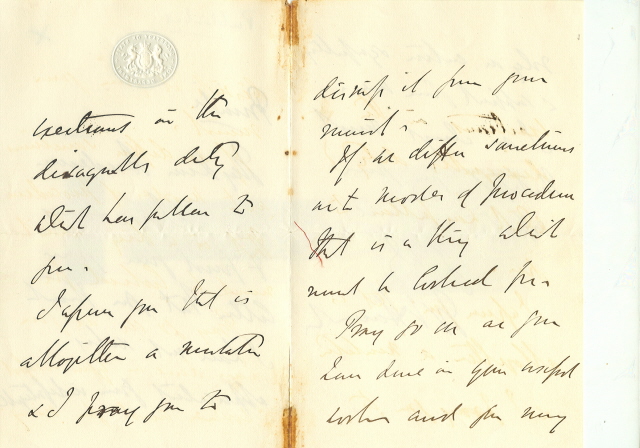 exertions in the
disagreeable duty
which has fallen to
you.
I assure you that is
altogether a mistake
& I pray you to
dismiss it from your
mind.
If we differ sometimes
as to modes of Procedure
that is a thing which
must be looked for.
Pray go on as you
have done in your useful
work and you may